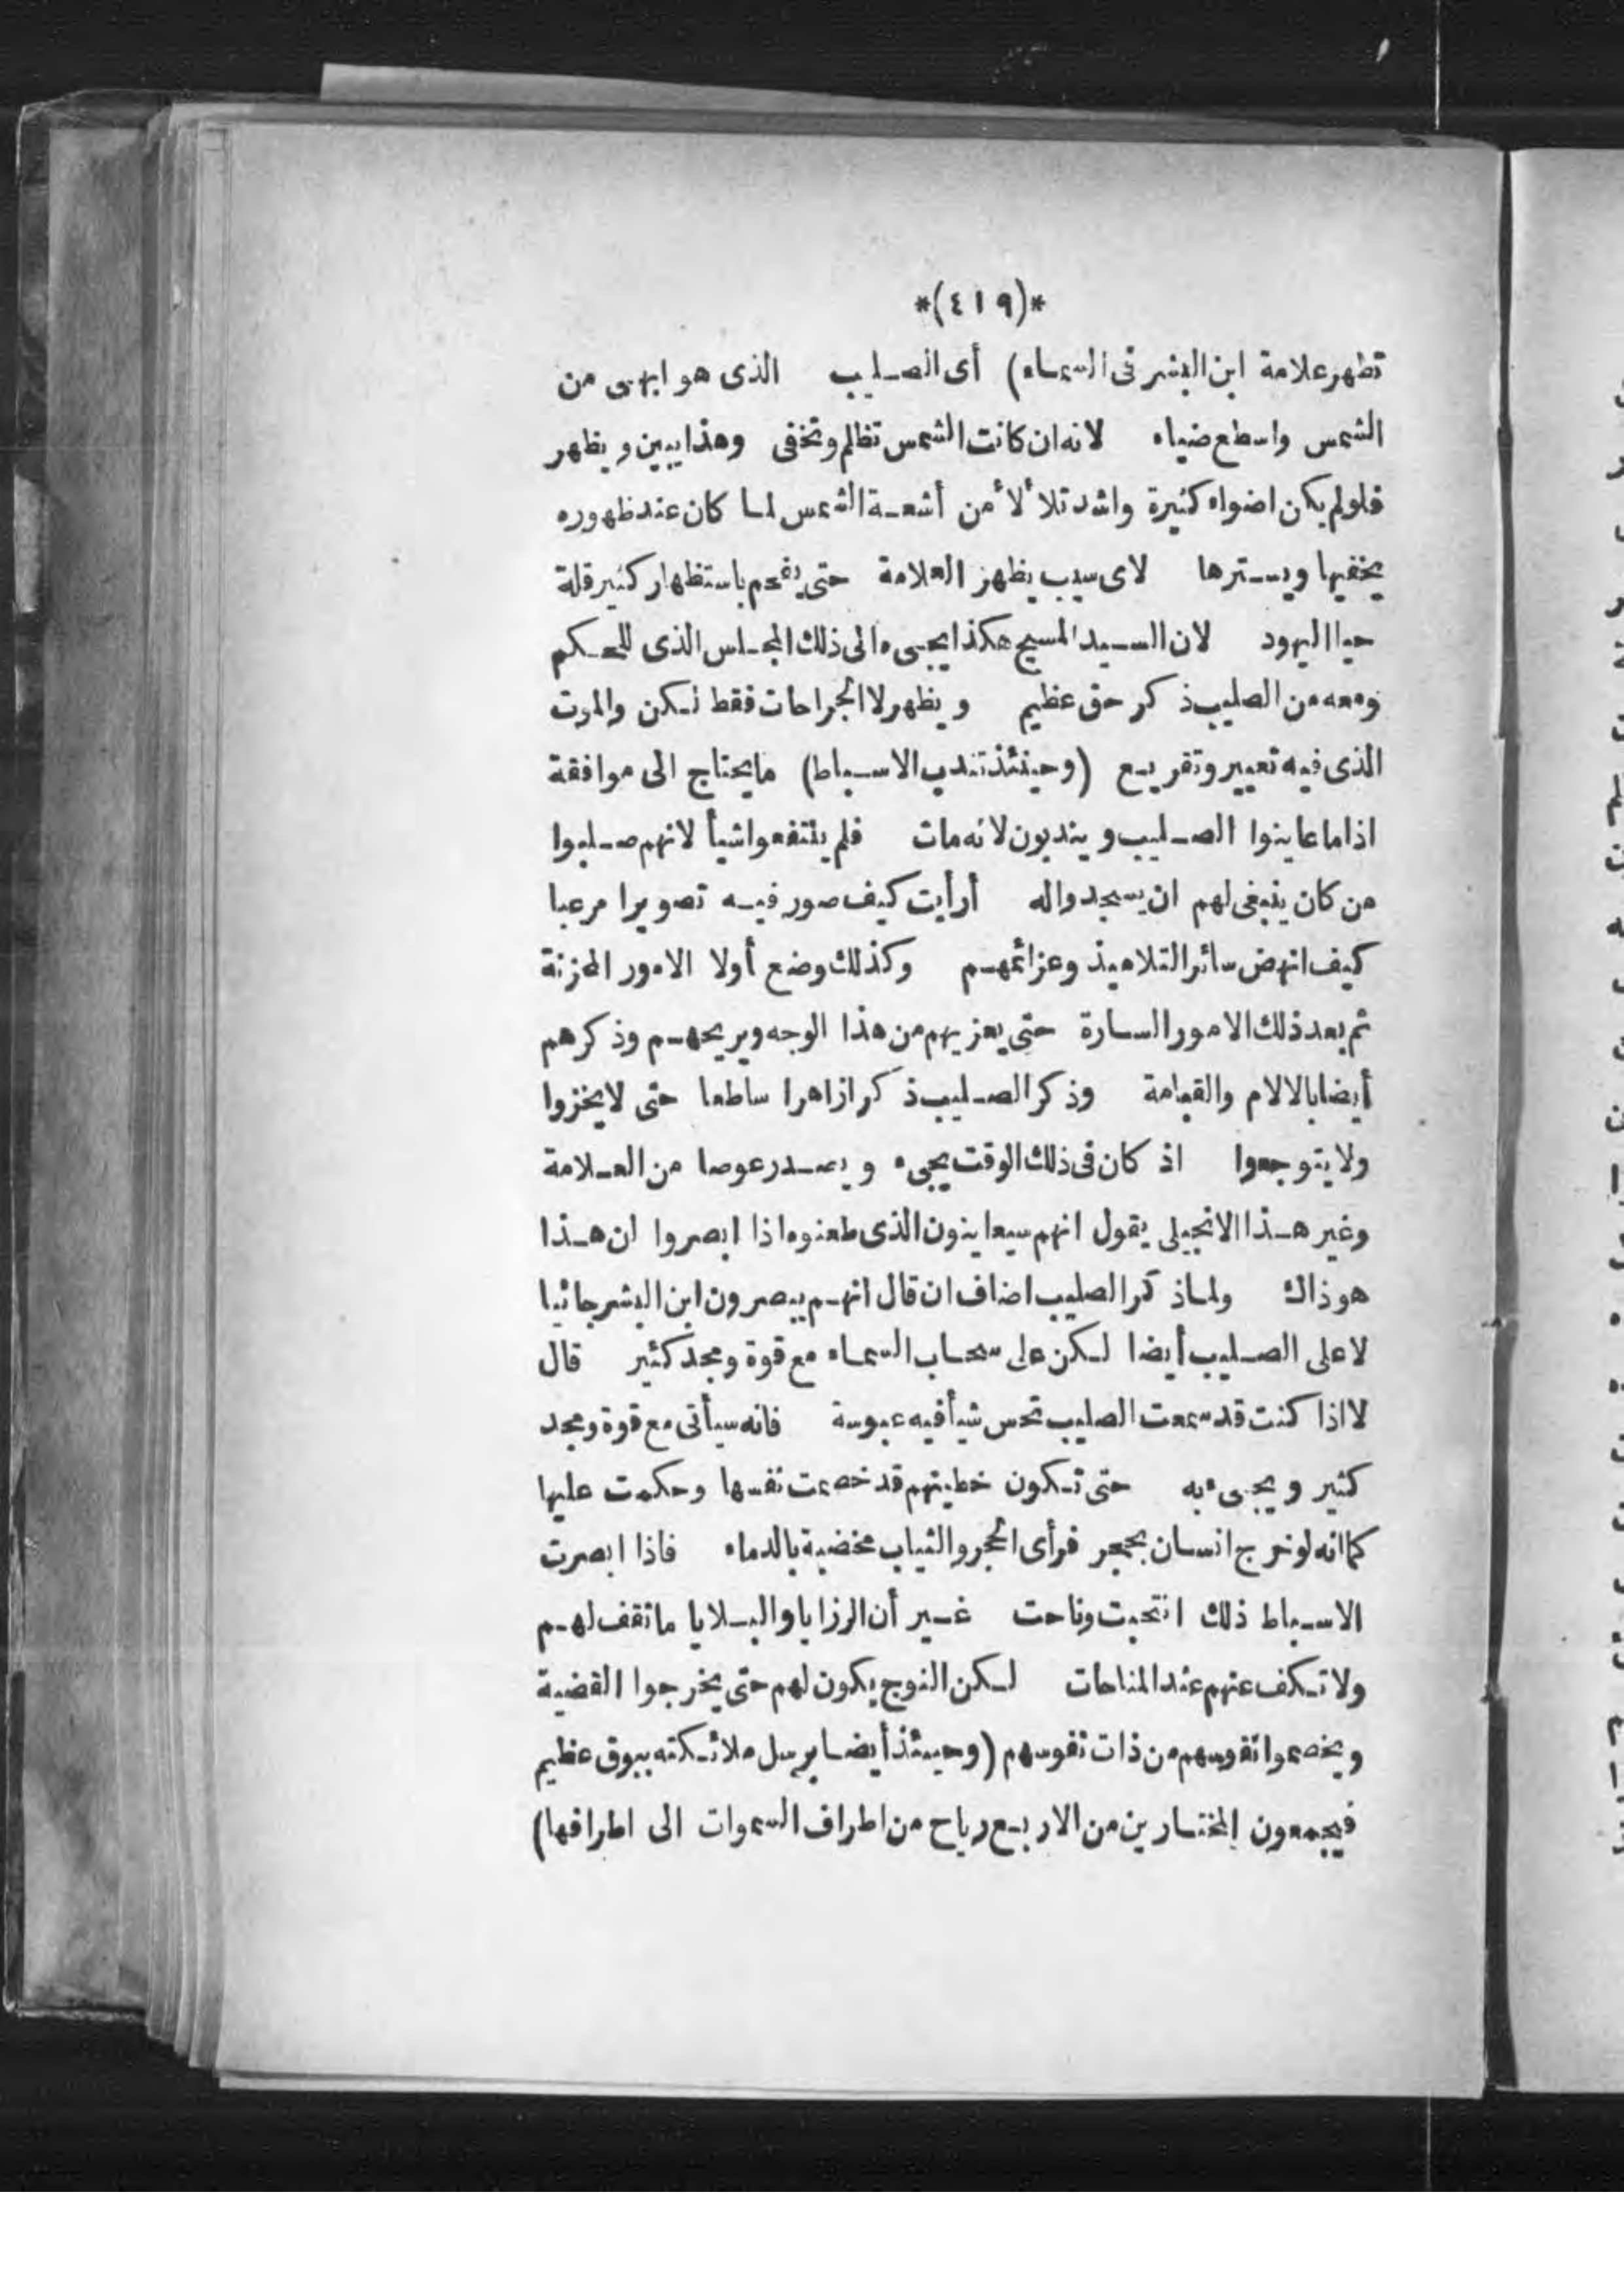 *(٤١٩)*
تظهر علامة ابن البشر فى السماء) أى الصليب الذى هو ابهى من
الشمس واسطع ضياء لانه ان كانت الشمس تظلم وتخفى وهذا يبين و يظهر
فلولم يكن اضواء كثيرة واشد تلألأ من أشعة الشمس لما كان عند ظهوره
يخفيها ويسترها لاى سبب يظهر العلامة حتى يفحم باستظهار كثير قلة
حيا اليهود لان السيد المسيح هكذا يجىء الى ذلك المجلس الذى للحكم
ومعه من الصليب ذكر حق عظيم و يظهر لا الجراحات فقط لكن والموت
الذى فيه تعيير وتقريع (وحينئذ تندب الاسباط) ما يحتاج الى موافقة
اذا ما عاينوا الصليب و يندبون لانه مات فلم ينتفعوا شيأ لانهم صلبوا
من كان ينبغى لهم ان يسجدوا له أرأيت كيف صور فيه تصويرا مرعبا
كيف انهض سائر التلاميذ وعزائمهم وكذلك وضع أولا الامور المحزنة
ثم بعد ذلك الامور السارة حتى يعزيهم من هذا الوجه ويريحهم وذكرهم
أيضا بالالام والقيامة وذكر الصليب ذكرا زاهرا ساطعا حتى لا يخزوا
ولا يتوجعوا اذ كان فى ذلك الوقت يجىء و يصدر عوصا من العلامة
وغير هذا الانجيلى يقول انهم سيعاينون الذى طعنوه اذا ابصروا ان هذا
هو ذاك ولما ذكر الصليب اضاف ان قال انهم يبصرون ابن البشر جائيا
لا على الصليب أيضا لكن على سحاب السماء مع قوة ومجد كثير قال
لا اذا كنت قد سمعت الصليب تحس شيأ فيه عبوسة فانه سيأتى مع قوة ومجد
كثير و يجىء به حتى تكون خطيتهم قد خصمت نفسها وحكمت عليها
كما انه لو خرج انسان بحجر فرأى الحجر والثياب مخضبة بالدماء فاذا ابصرت
الاسباط ذلك انتحبت وناحت غير أن الرزايا والبلايا ما تقف لهم
ولا تكف عنهم عند المناحات لكن النوح يكون لهم حتى يخرجوا القضية
و يخصموا نفوسهم من ذات نفوسهم (وحينئذ أيضا يرسل ملائكته ببوق عظيم
فيجمعون المختارين من الاربع رياح من اطراف السموات الى اطرافها)